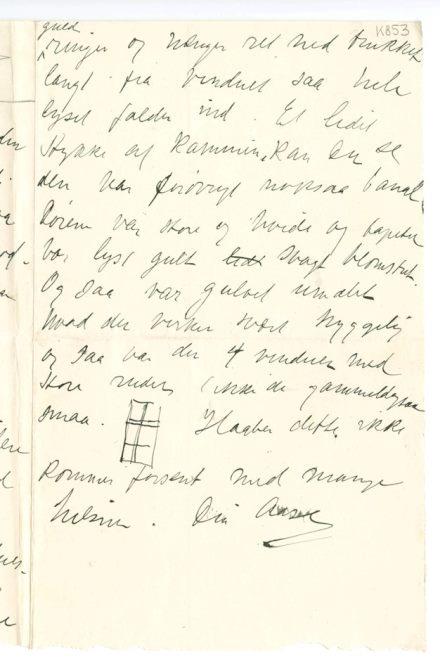 K853
guld
ringer og hænger ret ned trukket
langt fra vinduet saa hele
lyset falder ind. Et lidet
stykke af Kaminen, kan Du se
den var forøvrigt noksaa banal
Dørene var store og hvide og tapetet
var lyst gult lidt svagt blomstret.
Og saa var gulvet umalet
hvad der virker svært hyggelig
og saa var der 4 vinduer med
store ruder, (ikke de gammeldagse
smaa. Haaber dette ikke
kommer forsent med mange
hilsner. Din